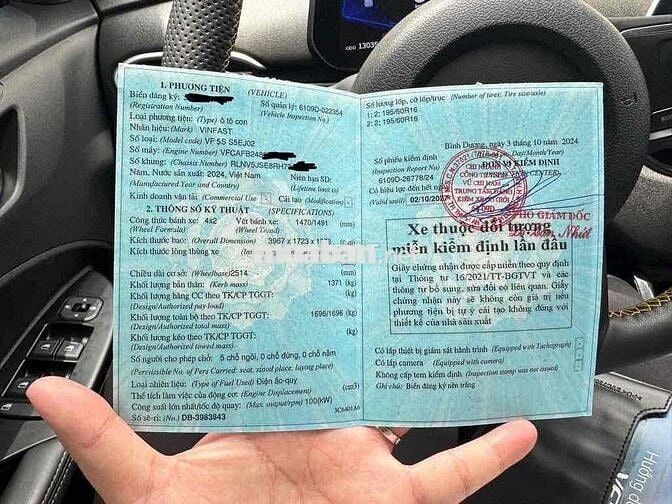 ODO 13035
1. PHƯƠNG TIỆN (VEHICLE)
Biển đăng ký:
(Registration Number)
Số quản lý: 6109D-022354
(Vehicle Inspection No)
Loại phương tiện: (Type) ô tô con
Nhãn hiệu: (Mark) VINFAST
Số loại: (Model code) VF 5S S5EJ02
Số máy: (Engine Number) VFCAFB248
Số khung: (Chassis Number) RLNV5JSE8RH7
Năm, Nước sản xuất: 2024, Việt Nam
(Manufactured Year and Country)
Niên hạn SD:
(Lifetime limit to)
Kinh doanh vận tải (Commercial Use)
Cải tạo (Modification)
2. THÔNG SỐ KỸ THUẬT (SPECIFICATIONS)
Công thức bánh xe: 4x2
(Wheel Formula)
Vết bánh xe: 1470/1491 (mm)
(Wheel Tread)
Kích thước bao: (Overall Dimension) 3967 x 1723 x (mm)
Kích thước lòng thùng xe:
(mm)
Chiều dài cơ sở: (Wheelbase) 2514 (mm)
Khối lượng bản thân: (Kerb mass) 1371 (kg)
Khối lượng hàng CC theo TK/CP TGGT: (kg)
(Design/Authorized pay load)
Khối lượng toàn bộ theo TK/CP TGGT: 1696/1696 (kg)
(Design/Authorized total mass)
Khối lượng kéo theo TK/CP TGGT: (kg)
(Design/Authorized towed mass)
Số người cho phép chở: 5 chỗ ngồi, 0 chỗ đứng, 0 chỗ nằm
(Permissible No. of Pers Carried: seat, stood place, laying place)
Loại nhiên liệu: (Type of Fuel Used) Điện ắc-quy
Thể tích làm việc của động cơ: (Engine Displacement) (cm3)
Công suất lớn nhất/tốc độ quay: (Max. output/rpm) 100(kW)
Số sê-ri: (No.) DB-3983843
Số lượng lốp, cỡ lốp/trục (Number of tires: Tire size/axle)
1: 2; 195/60R16
2: 2; 195/60R16
Bình Dương, ngày 3 tháng 10 năm 2024
Số phiếu kiểm định
(Inspection Report No)
6109D-26778/24
Có hiệu lực đến hết
(Valid until) 02/10/2027
ĐƠN VỊ KIỂM ĐỊNH
VŨ CHÍ NAM
TRUNG TÂM ĐĂNG
KIỂM XE CƠ GIỚI
PHÓ GIÁM ĐỐC
Xe thuộc đối tượng
miễn kiểm định lần đầu
Giấy chứng nhận được cấp miễn theo quy định
tại Thông tư 16/2021/TT-BGTVT và các
thông tư bổ sung, sửa đổi có liên quan. Giấy
chứng nhận này sẽ không còn giá trị nếu
phương tiện bị tự ý cải tạo không đúng với
thiết kế của nhà sản xuất
Có lắp thiết bị giám sát hành trình (Equipped with Tachograph)
Có lắp camera (Equipped with camera)
Không cấp tem kiểm định (Inspection stamp was not issued)
Ghi chú: Biển đăng ký nền trắng
Hướng d